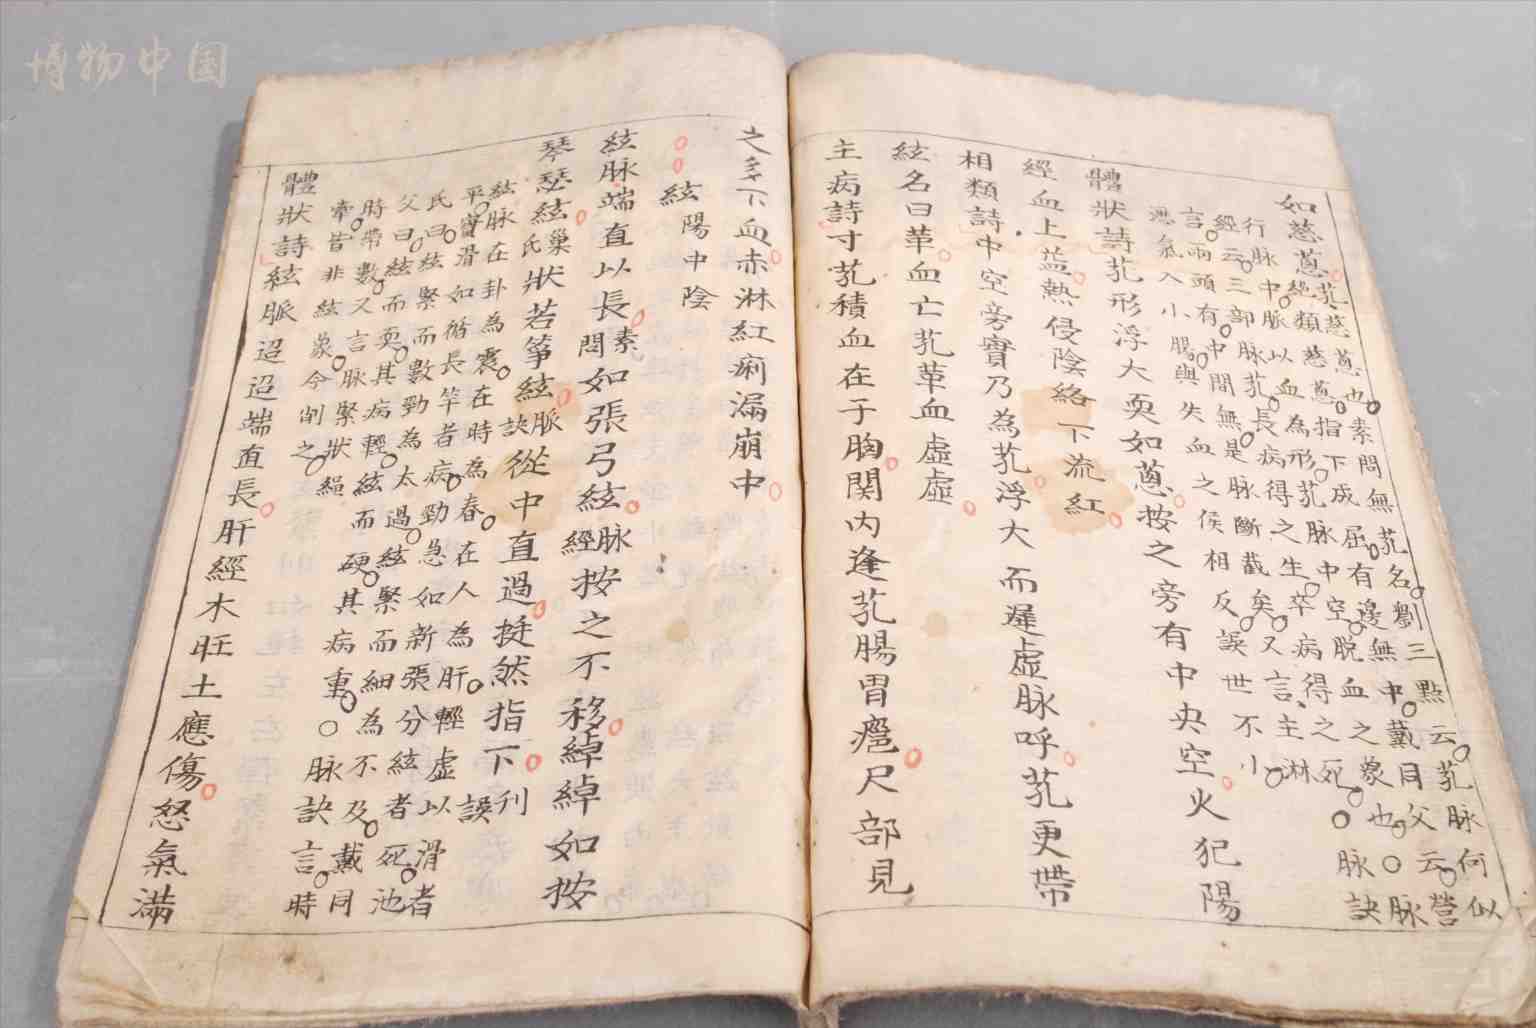 如慈䓤芤慈䓤也素問無芤名劉三點云芤脉何似
絕類慈䓤指下成屈有邊無中戴同父云營
行脉中脈以血為形芤脉中空脫血之象也○脉
經云三部脉芤長病得之生卒病得之死○脉訣
言兩頭有中間無是脉斷截矣又言主淋
瀝氣入小腸與失血之候相反誤世不小
體狀詩芤形浮大耎如䓤按之旁有中央空火犯陽
經血上溢熱侵陰絡下流紅
相類詩中空旁實乃為芤浮大而遲虛脉呼芤更帶
絃名曰革血亡芤革血虛虛
主病詩寸芤積血在于胸関内逢芤腸胃癰尺部見
之多下血赤淋紅痢漏崩中
絃陽中陰
絃脉端直以長素問如張弓絃脉經按之不移綽綽如按
琴瑟絃巢氏狀若箏絃脈訣從中直過挺然指下刊誤
絃脉在卦為震在時為春在人為肝輕虛以滑者
平實滑如循長竿者病勁急如新張分絃者死池
氏曰絃緊而數勁為太過絃緊而細為不及戴同
父曰絃而耎其病輕絃而硬其病重○脉訣言時
時帶數又言脉緊狀繩
牽皆非絃象今削之
體狀詩絃脈迢迢端直長肝經木旺土應傷怒氣滿
博物中国